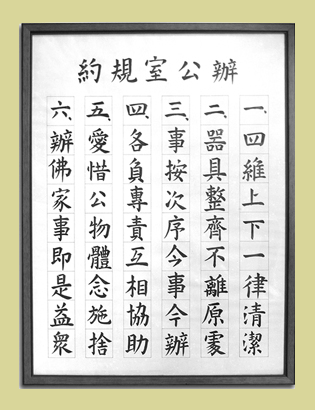 辦公室規約
一、四維上下一律清潔
二、器具整齊不離原處
三、事按次序今事今辦
四、各負專責互相協助
五、愛惜公物體念施捨
六、辦佛家事即是益衆